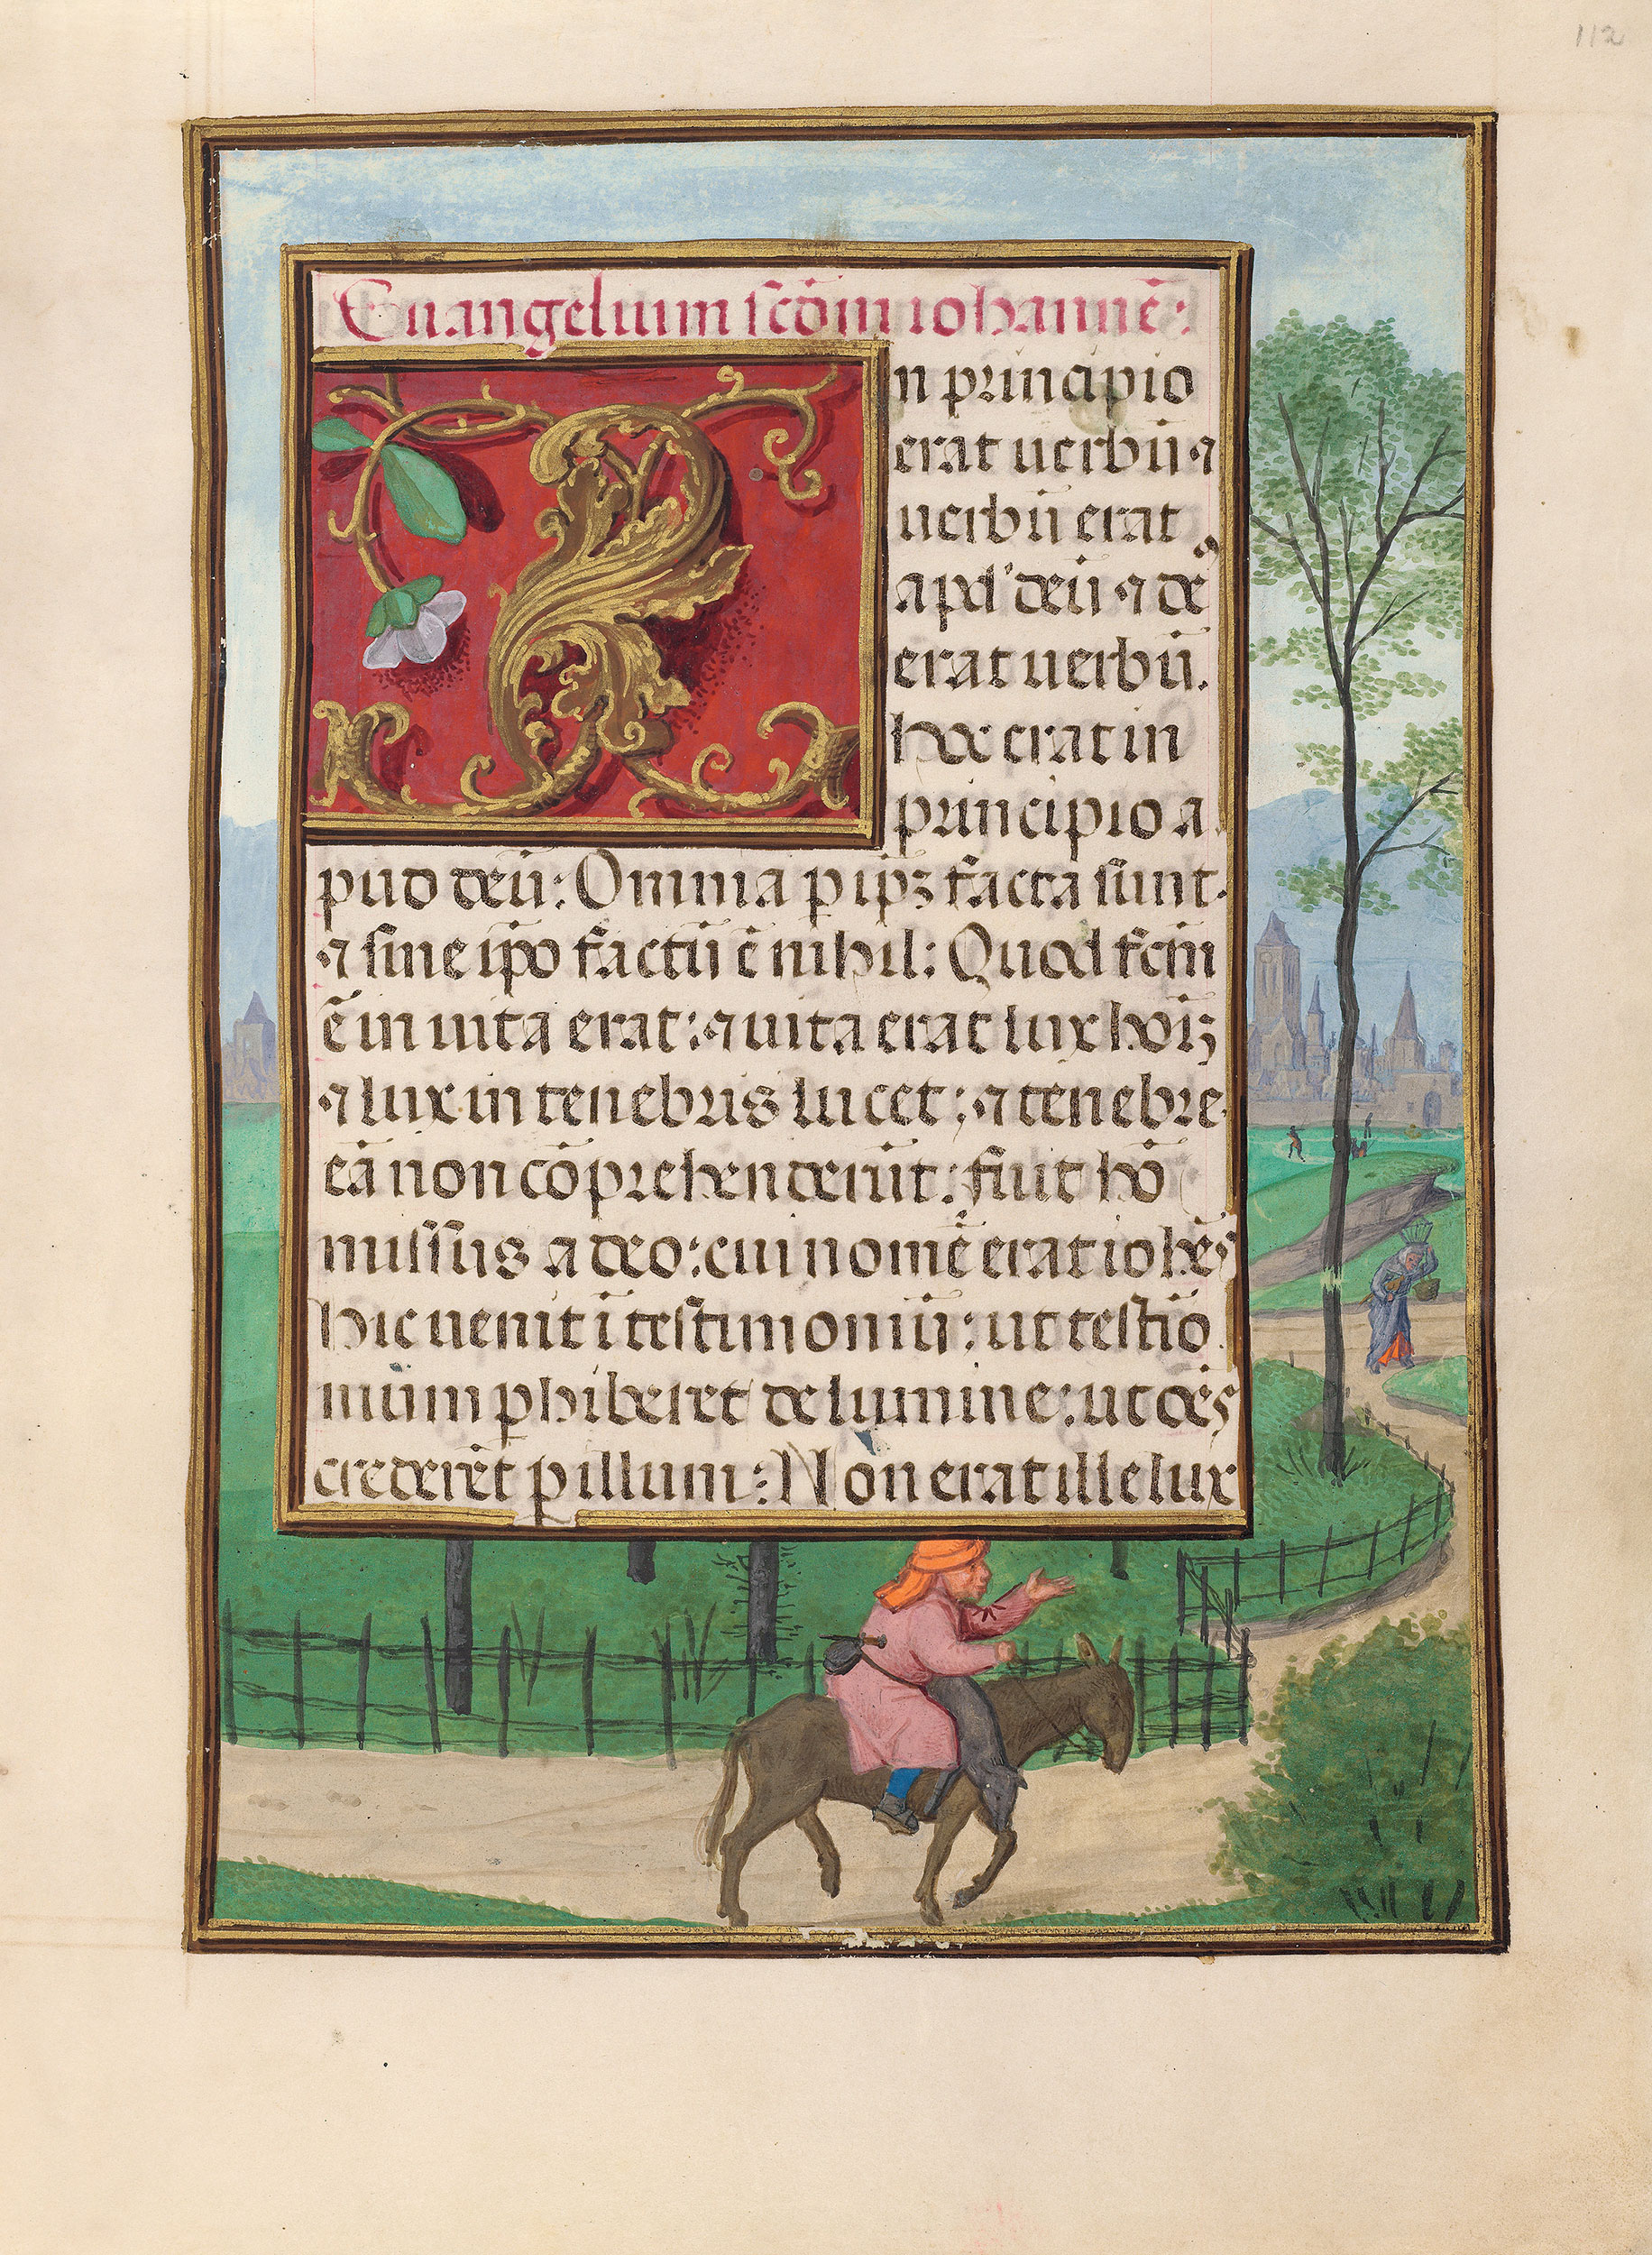 112
Euangelium scdm iohanne:
In principio
erat uerbū ⁊
uerbū erat
apd' deū ⁊ de᷒
erat uerbū.
hoc erat in
principio a
pud deū: Omnia ꝑ ipꝫ facta sunt.
⁊ sine ipo factū ē nihil: Quod fcm̄
ē in uita erat: ⁊ uita erat lux hoīꝫ
⁊ lux in tenebris lucet: ⁊ tenebre
eā non cōprehenderūt: fuit hō
missus a deo: cui nomē erat iohēs
hic uenit ī testimoniū: ut testīo
nium ꝑhiberet de lumine: ut oēs
crederēt ꝑ illum: Non erat ille lux